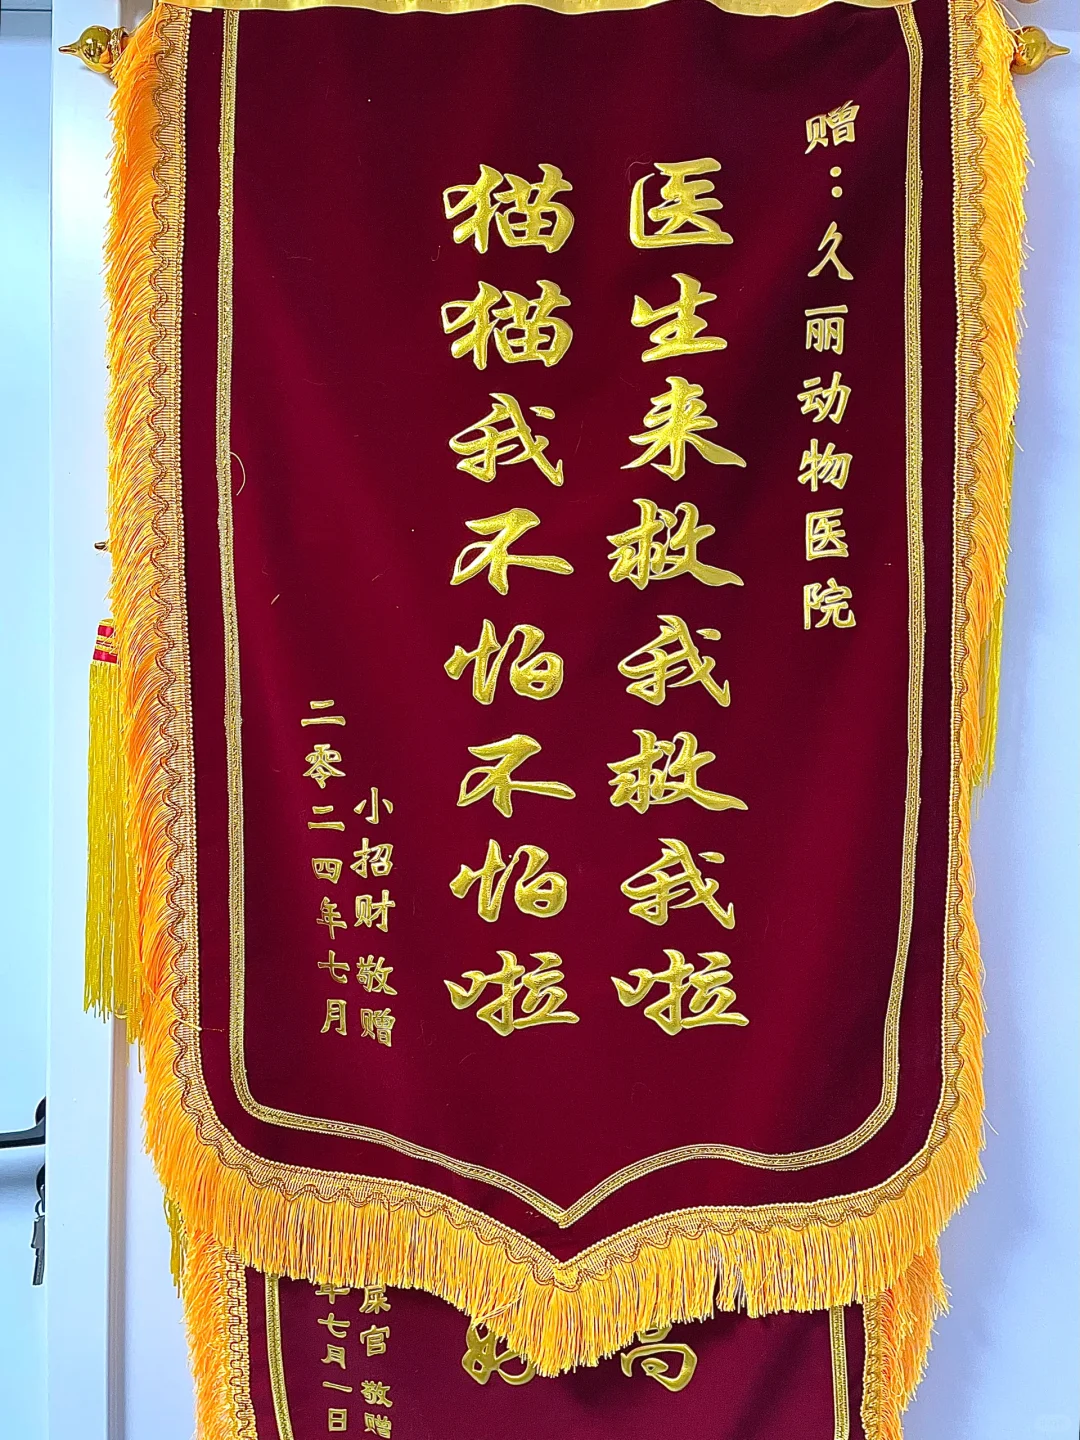 赠：久丽动物医院
医生来救我救我啦
猫猫我不怕不怕啦
小招财 敬赠
二零二四年七月
高
屎官 敬赠
年七月一日